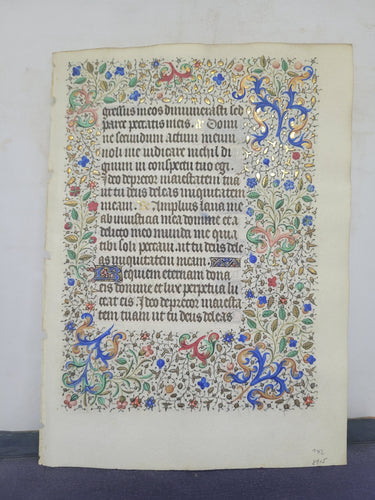 gressus meos dinumerasti sed
parce peccatis meis. V Domi
ne secundum actum meum
noli me iudicare nichil di
gnum in conspectu tuo egi.
Ideo deprecor maiestatem tua
ut tu deus deleas iniquitatem
meam. V Amplius laua me
ab iniusticia mea domine et a
delicto meo munda me quia
tibi soli peccaui. ut tu deus dele
as iniquitatem meam.
Requiem eternam dona
eis domine et lux perpetua lu
ceat eis Ideo deprecor maiesta
tem tuam ut tu deus deleas